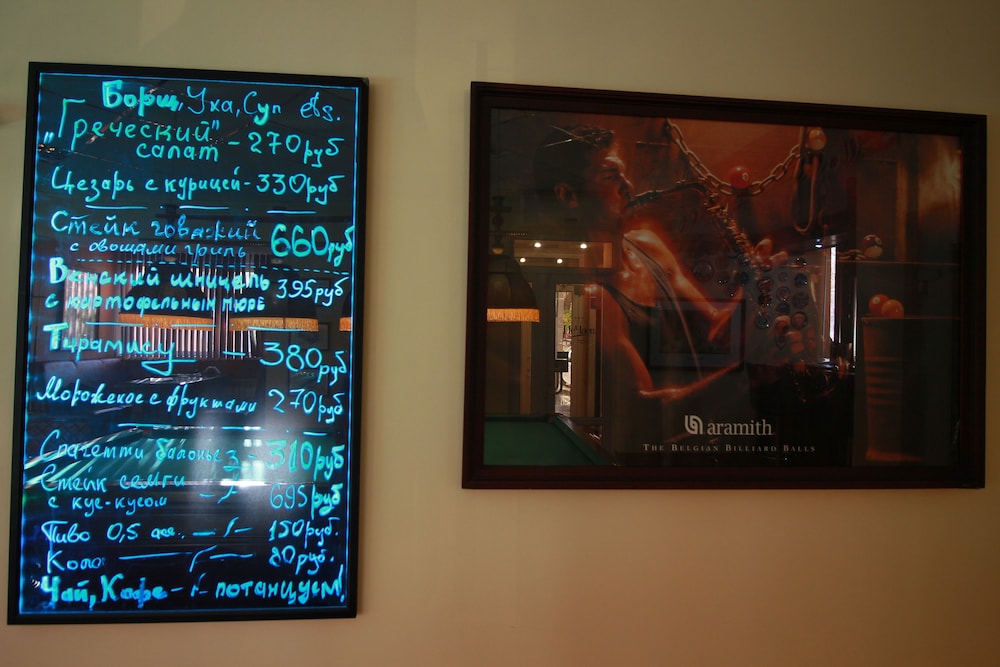 Борщ, Уха, Суп ets.
„Греческий"
салат - 270 руб
Цезарь с курицей - 330 руб
Стейк говяжий
с овощами гриль 660 руб
Венский шницель
с картофельным пюре 395 руб
Тирамису — 380 руб
Мороженое с фруктами 270 руб
Спагетти балонье з - 310 руб
Стейк семги
с кус-кусом -//- 695 руб
Пиво 0,5 -//- 150 руб.
Кола -//- 80 руб.
Чай, Кофе - // - потанцуем!
aramith
THE BELGIAN BILLIARD BALLS